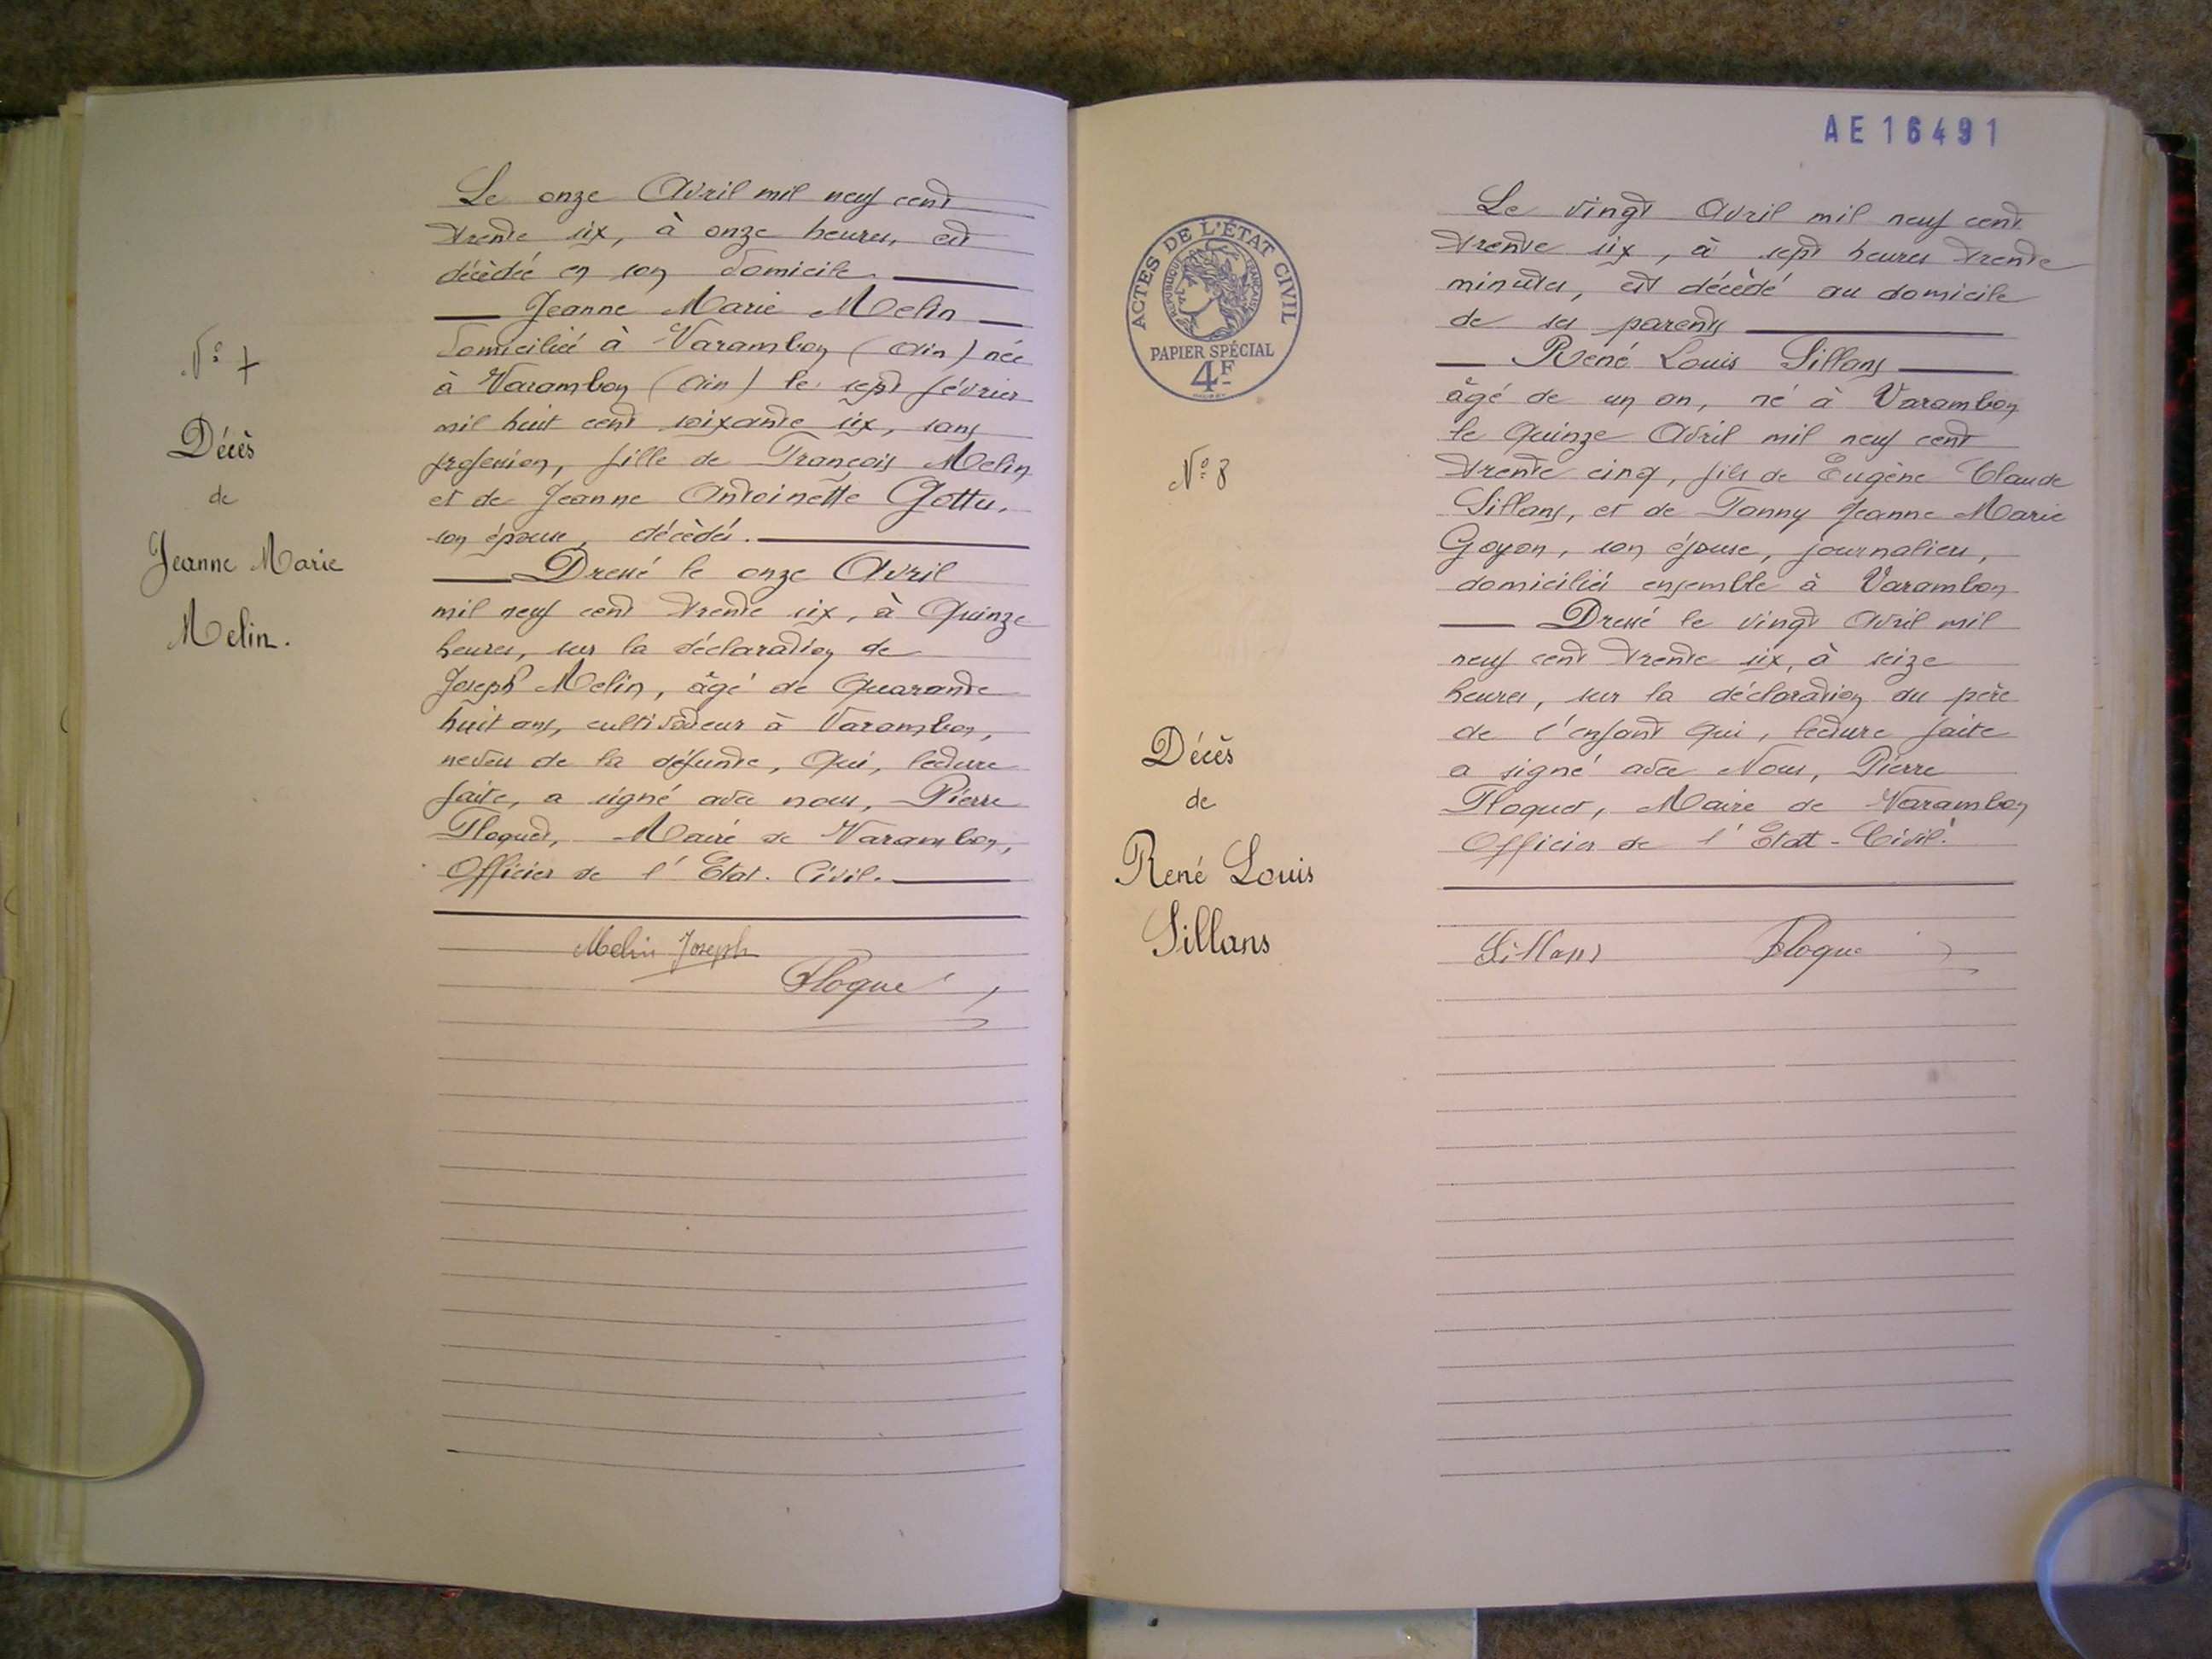 N° 7
Décès
de
Jeanne Marie
Melin.
Le onze Avril mil neuf cent
trente six, à onze heures, est
décèdée en son domicile
Jeanne Marie Melin
domiciliée à Varambon (Ain) née
à Varambon (Ain) le sept février
mil huit cent soixante six, sans
profession, fille de François Melin
et de Jeanne Antoinette Gottu,
son épouse, décèdés.
Dressé le onze Avril
mil neuf cent trente six, à Quinze
heures, sur la déclaration de
Joseph Melin, âgé de Quarante
huit ans, cultivateur à Varambon,
neveu de la défunte, Qui, lecture
faite, a signé avec nous, Pierre
Floquet, Maire de Varambon,
Officier de l'Etat. Civil.
Melin Joseph
Floquet
AE16491
ACTES DE L'ÉTAT CIVIL
REPUBLIQUE FRANÇAISE
PAPIER SPÉCIAL
4F
N° 8
Décès
de
René Louis
Sillans
Le vingt Avril mil neuf cent
trente six, à sept heures trente
minutes, est décèdé au domicile
de ses parents
René Louis Sillans
âgé de un an, né à Varambon
le Quinze Avril mil neuf cent
trente cinq, fils de Eugène Claude
Sillans, et de Fanny Jeanne Marie
Goyon, son épouse, journaliers,
domiciliés ensemble à Varambon
Dressé le vingt Avril mil
neuf cent trente six, à seize
heures, sur la déclaration du père
de l'enfant Qui, lecture faite
a signé avec Nous, Pierre
Floquet, Maire de Varambon
Officier de l'Etatt-Civil.
Sillans Floquet